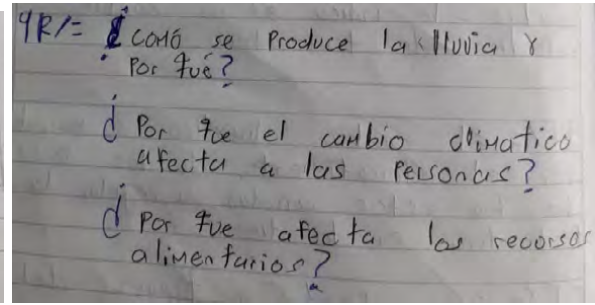 9R/= ¿comó se Produce la lluvia y
Por qué?
¿ Por que el cambio climatico
afecta a las Personas?
¿ Por que afecta los recursos
alimentarios?